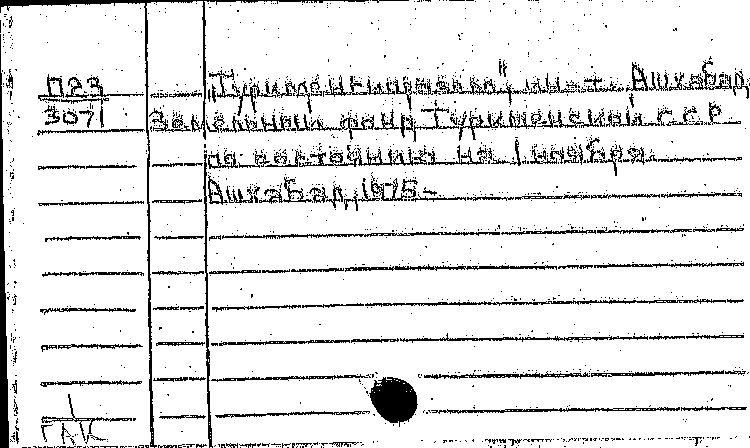 П23
3071
„Туркменгипрозем", ин-т. Ашхабад,
Земельный фонд Туркменской ССР
по состоянию на 1 ноября.
Ашхабад, 1975-
1
ГАК